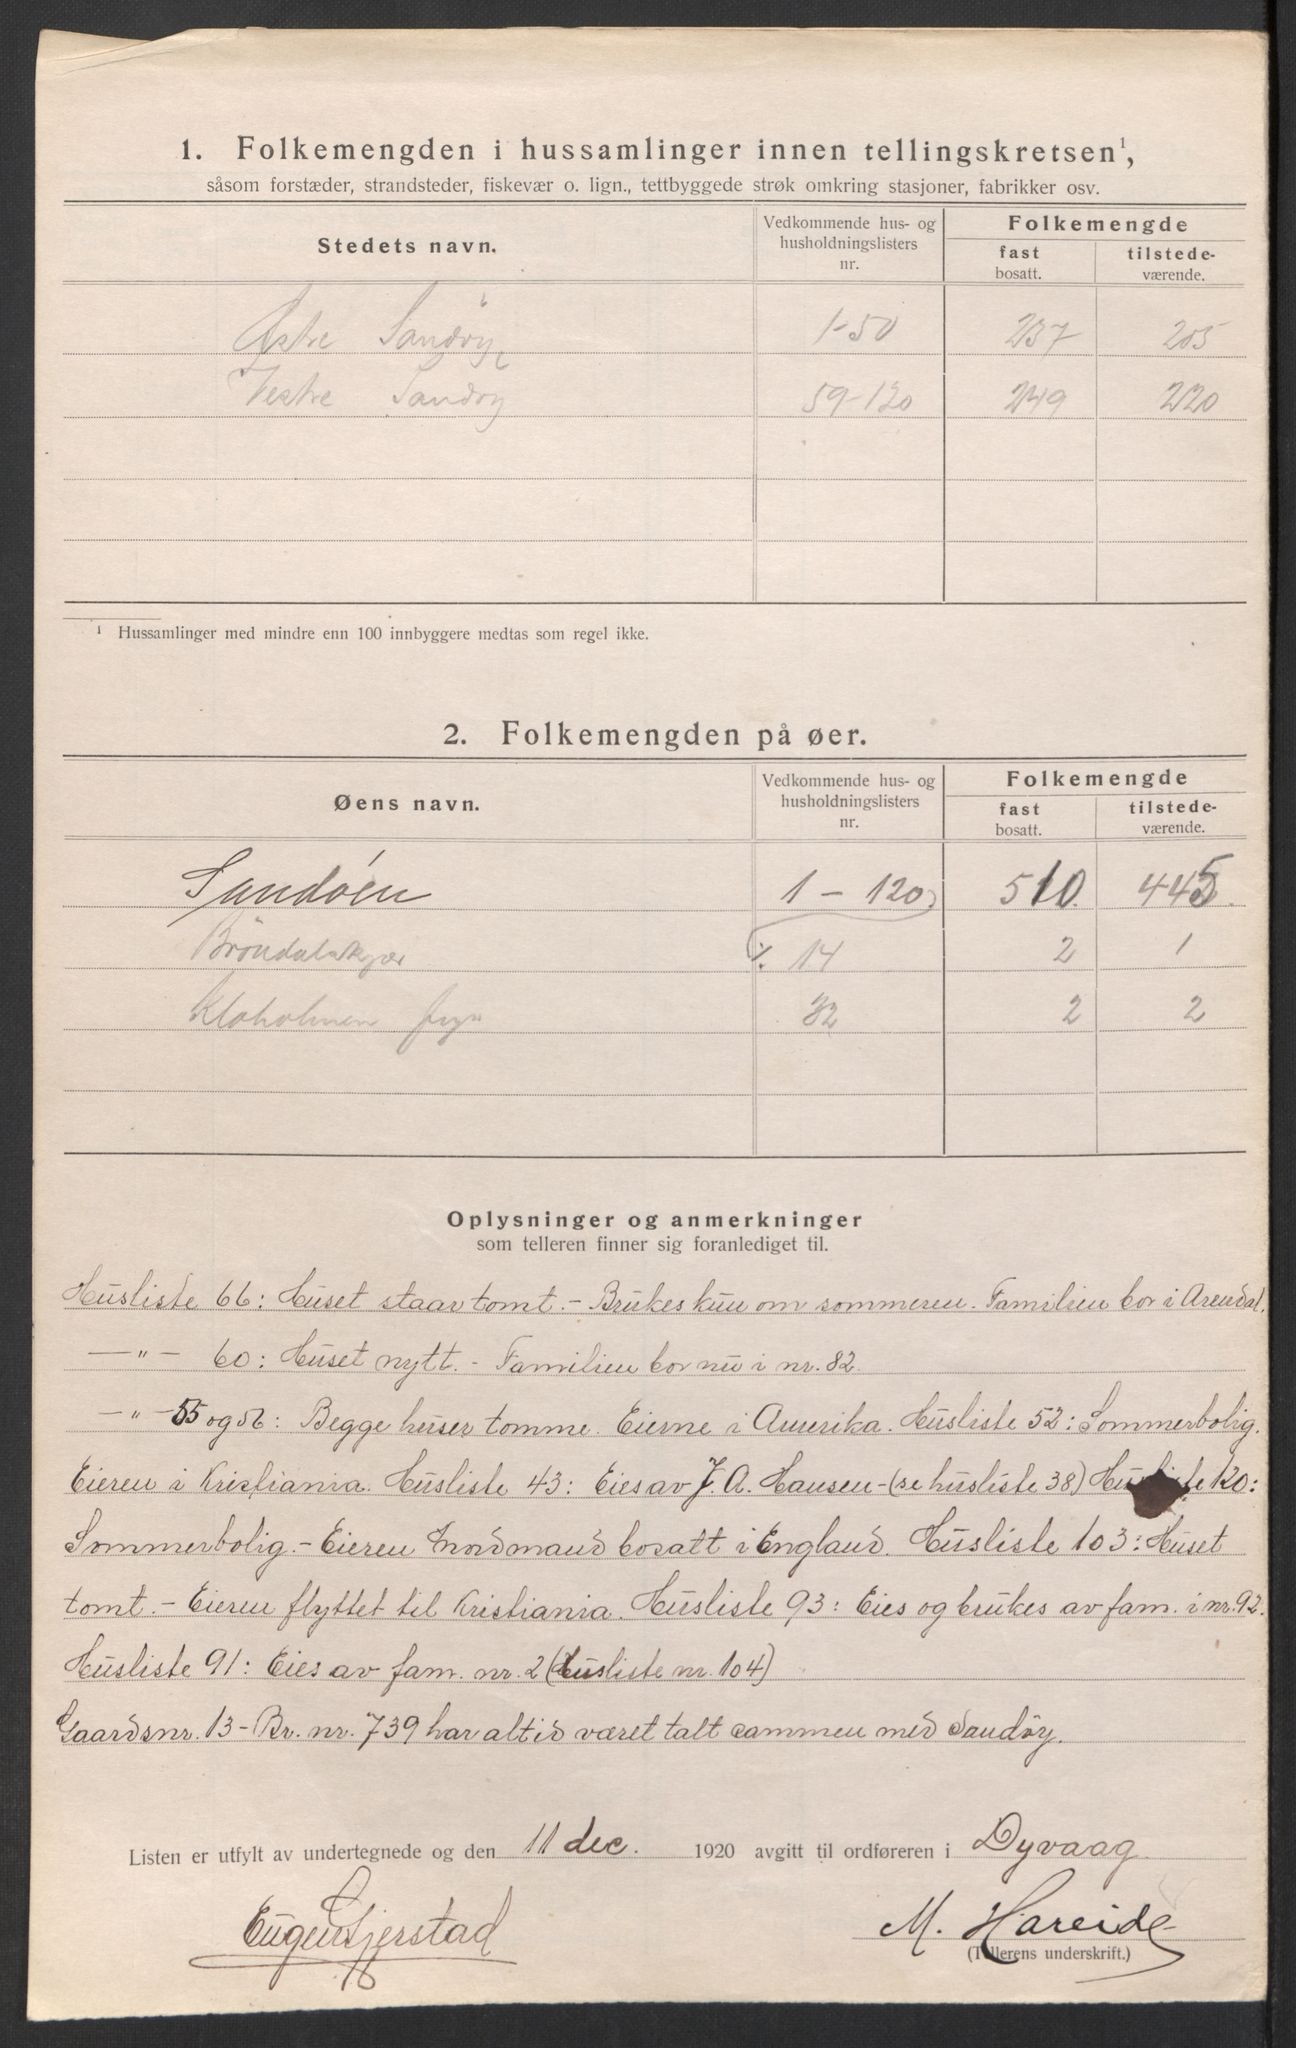 1. Folkemengden i hussamlinger innen tellingskretsen¹,
såsom forstæder, strandsteder, fiskevær o. lign., tettbyggede strøk omkring stasjoner, fabrikker osv.
Stedets navn. Vedkommende hus- og husholdningslisters nr. Folkemengde fast bosatt. tilstede-værende.
Østre Sandöy 1-50 237 205
Vestre Sandöy 59-120 249 220
¹ Hussamlinger med mindre enn 100 innbyggere medtas som regel ikke.
2. Folkemengden på øer.
Øens navn. Vedkommende hus- og husholdningslisters nr. Folkemengde fast bosatt. tilstede-værende.
Sandöen 1 – 120 510 445
Bröndalskjær 14 2 1
Kloholmen 32 2 2
Oplysninger og anmerkninger
som telleren finner sig foranlediget til.
Husliste 66: Huset staar tomt. – Brukes kun om sommeren. Familien bor i Arendal.
—"— 60: Huset nytt. – Familien bor nu i nr. 82.
—"— 55 og 56: Begge huser tomme. Eierne i Amerika. Husliste 52: Sommerbolig.
Eieren i Kristiania. Husliste 43: Eies av J. A. Hansen – (se husliste 38) Husliste 120:
Sommerbolig. – Eieren Nordmand bosatt i England. Husliste 103: Huset
tomt. – Eieren flyttet til Kristiania. Husliste 93: Eies og brukes av fam. i nr. 92.
Husliste 91: Eies av fam. nr. 2 (Husliste nr. 104)
Gaardsnr. 13 – Br. nr. 739 har altid været talt sammen med Sandöy.
Listen er utfylt av undertegnede og den 11 dec. 1920 avgitt til ordføreren i Dyvaag
Eugen Fjerstad M. Hareide
(Tellerens underskrift.)